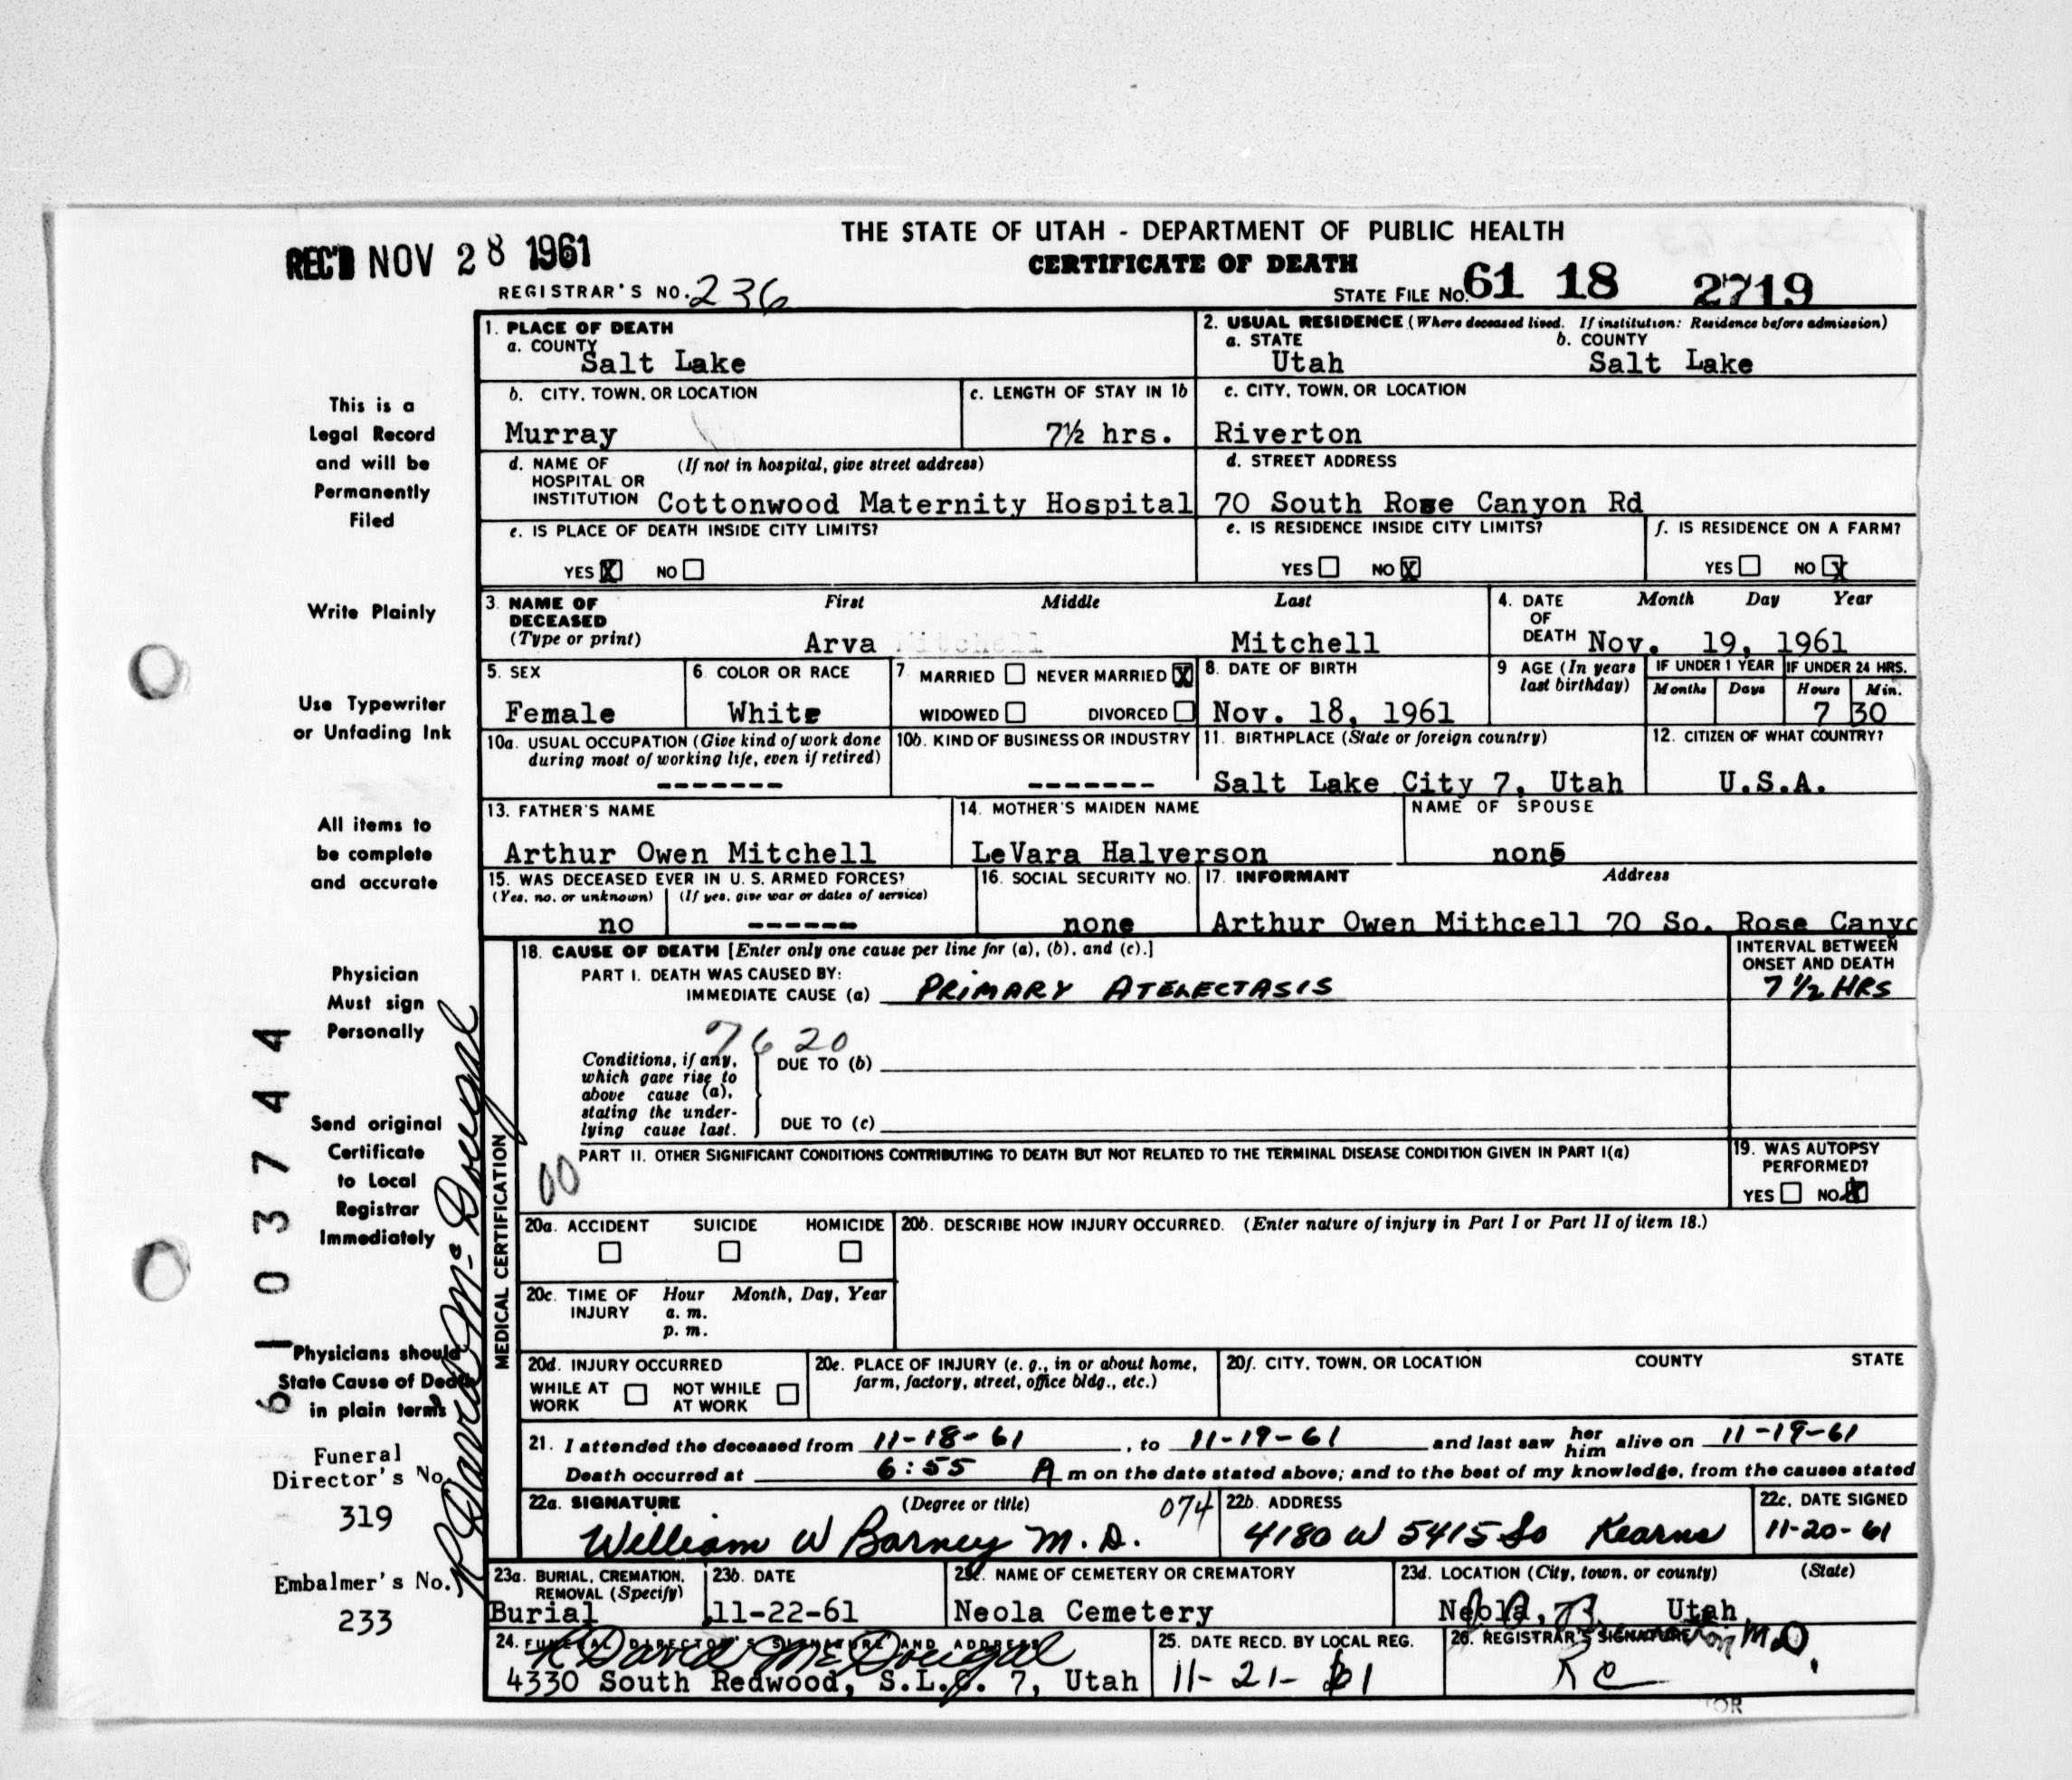 THE STATE OF UTAH - DEPARTMENT OF PUBLIC HEALTH
REC'D NOV 28 1961
CERTIFICATE OF DEATH
REGISTRAR'S NO. 236
STATE FILE NO. 61 18 2719
1. PLACE OF DEATH
a. COUNTY
Salt Lake
2. USUAL RESIDENCE (Where deceased lived. If institution: Residence before admission)
a. STATE b. COUNTY
Utah Salt Lake
b. CITY, TOWN, OR LOCATION
Murray
c. LENGTH OF STAY IN 1b
7½ hrs.
c. CITY, TOWN, OR LOCATION
Riverton
d. NAME OF (If not in hospital, give street address)
HOSPITAL OR
INSTITUTION Cottonwood Maternity Hospital
d. STREET ADDRESS
70 South Rose Canyon Rd
e. IS PLACE OF DEATH INSIDE CITY LIMITS?
YES X NO
e. IS RESIDENCE INSIDE CITY LIMITS?
YES NO X
f. IS RESIDENCE ON A FARM?
YES NO X
3. NAME OF DECEASED
(Type or print)
First Middle Last
Arva Mitchell Mitchell
4. DATE OF DEATH
Month Day Year
Nov. 19, 1961
5. SEX
Female
6. COLOR OR RACE
White
7. MARRIED NEVER MARRIED X
WIDOWED DIVORCED
8. DATE OF BIRTH
Nov. 18, 1961
9 AGE (In years
last birthday)
IF UNDER 1 YEAR IF UNDER 24 HRS.
Months Days Hours Min.
7 30
10a. USUAL OCCUPATION (Give kind of work done
during most of working life, even if retired)
-------
10b. KIND OF BUSINESS OR INDUSTRY
-------
11. BIRTHPLACE (State or foreign country)
Salt Lake City 7, Utah
12. CITIZEN OF WHAT COUNTRY?
U.S.A.
13. FATHER'S NAME
Arthur Owen Mitchell
14. MOTHER'S MAIDEN NAME
LeVara Halverson
NAME OF SPOUSE
none
15. WAS DECEASED EVER IN U. S. ARMED FORCES?
(Yes, no, or unknown) (If yes, give war or dates of service)
no ------
16. SOCIAL SECURITY NO.
none
17. INFORMANT Address
Arthur Owen Mithcell 70 So. Rose Canyo
18. CAUSE OF DEATH [Enter only one cause per line for (a), (b), and (c).]
PART I. DEATH WAS CAUSED BY:
IMMEDIATE CAUSE (a) PRIMARY ATELECTASIS
INTERVAL BETWEEN
ONSET AND DEATH
7 1/2 HRS
7620
Conditions, if any,
which gave rise to
above cause (a),
stating the under-
lying cause last.
DUE TO (b)
DUE TO (c)
00
PART II. OTHER SIGNIFICANT CONDITIONS CONTRIBUTING TO DEATH BUT NOT RELATED TO THE TERMINAL DISEASE CONDITION GIVEN IN PART I(a)
19. WAS AUTOPSY
PERFORMED?
YES NO X
MEDICAL CERTIFICATION
20a. ACCIDENT SUICIDE HOMICIDE
20b. DESCRIBE HOW INJURY OCCURRED. (Enter nature of injury in Part I or Part II of item 18.)
20c. TIME OF INJURY
Hour Month, Day, Year
a. m.
p. m.
20d. INJURY OCCURRED
WHILE AT WORK NOT WHILE AT WORK
20e. PLACE OF INJURY (e. g., in or about home,
farm, factory, street, office bldg., etc.)
20f. CITY, TOWN, OR LOCATION COUNTY STATE
21. I attended the deceased from 11-18-61, to 11-19-61 and last saw her him alive on 11-19-61
Death occurred at 6:55 A m on the date stated above; and to the best of my knowledge, from the causes stated
22a. SIGNATURE (Degree or title) 074
William W Barney M. D.
22b. ADDRESS
4180 W 5415 So Kearns
22c. DATE SIGNED
11-20-61
23a. BURIAL, CREMATION,
REMOVAL (Specify)
Burial
23b. DATE
11-22-61
23c. NAME OF CEMETERY OR CREMATORY
Neola Cemetery
23d. LOCATION (City, town, or county) (State)
Neola, Utah
24. FUNERAL DIRECTOR'S SIGNATURE AND ADDRESS
R David McDougal
4330 South Redwood, S.L.C. 7, Utah
25. DATE RECD. BY LOCAL REG.
11-21-61
26. REGISTRAR'S SIGNATURE
M.D.
RC
This is a
Legal Record
and will be
Permanently
Filed
Write Plainly
Use Typewriter
or Unfading Ink
All items to
be complete
and accurate
Physician
Must sign
Personally
Send original
Certificate
to Local
Registrar
Immediately
Physicians should
State Cause of Death
in plain terms
Funeral
Director's No.
319
Embalmer's No.
233
6103744
R David McDougal